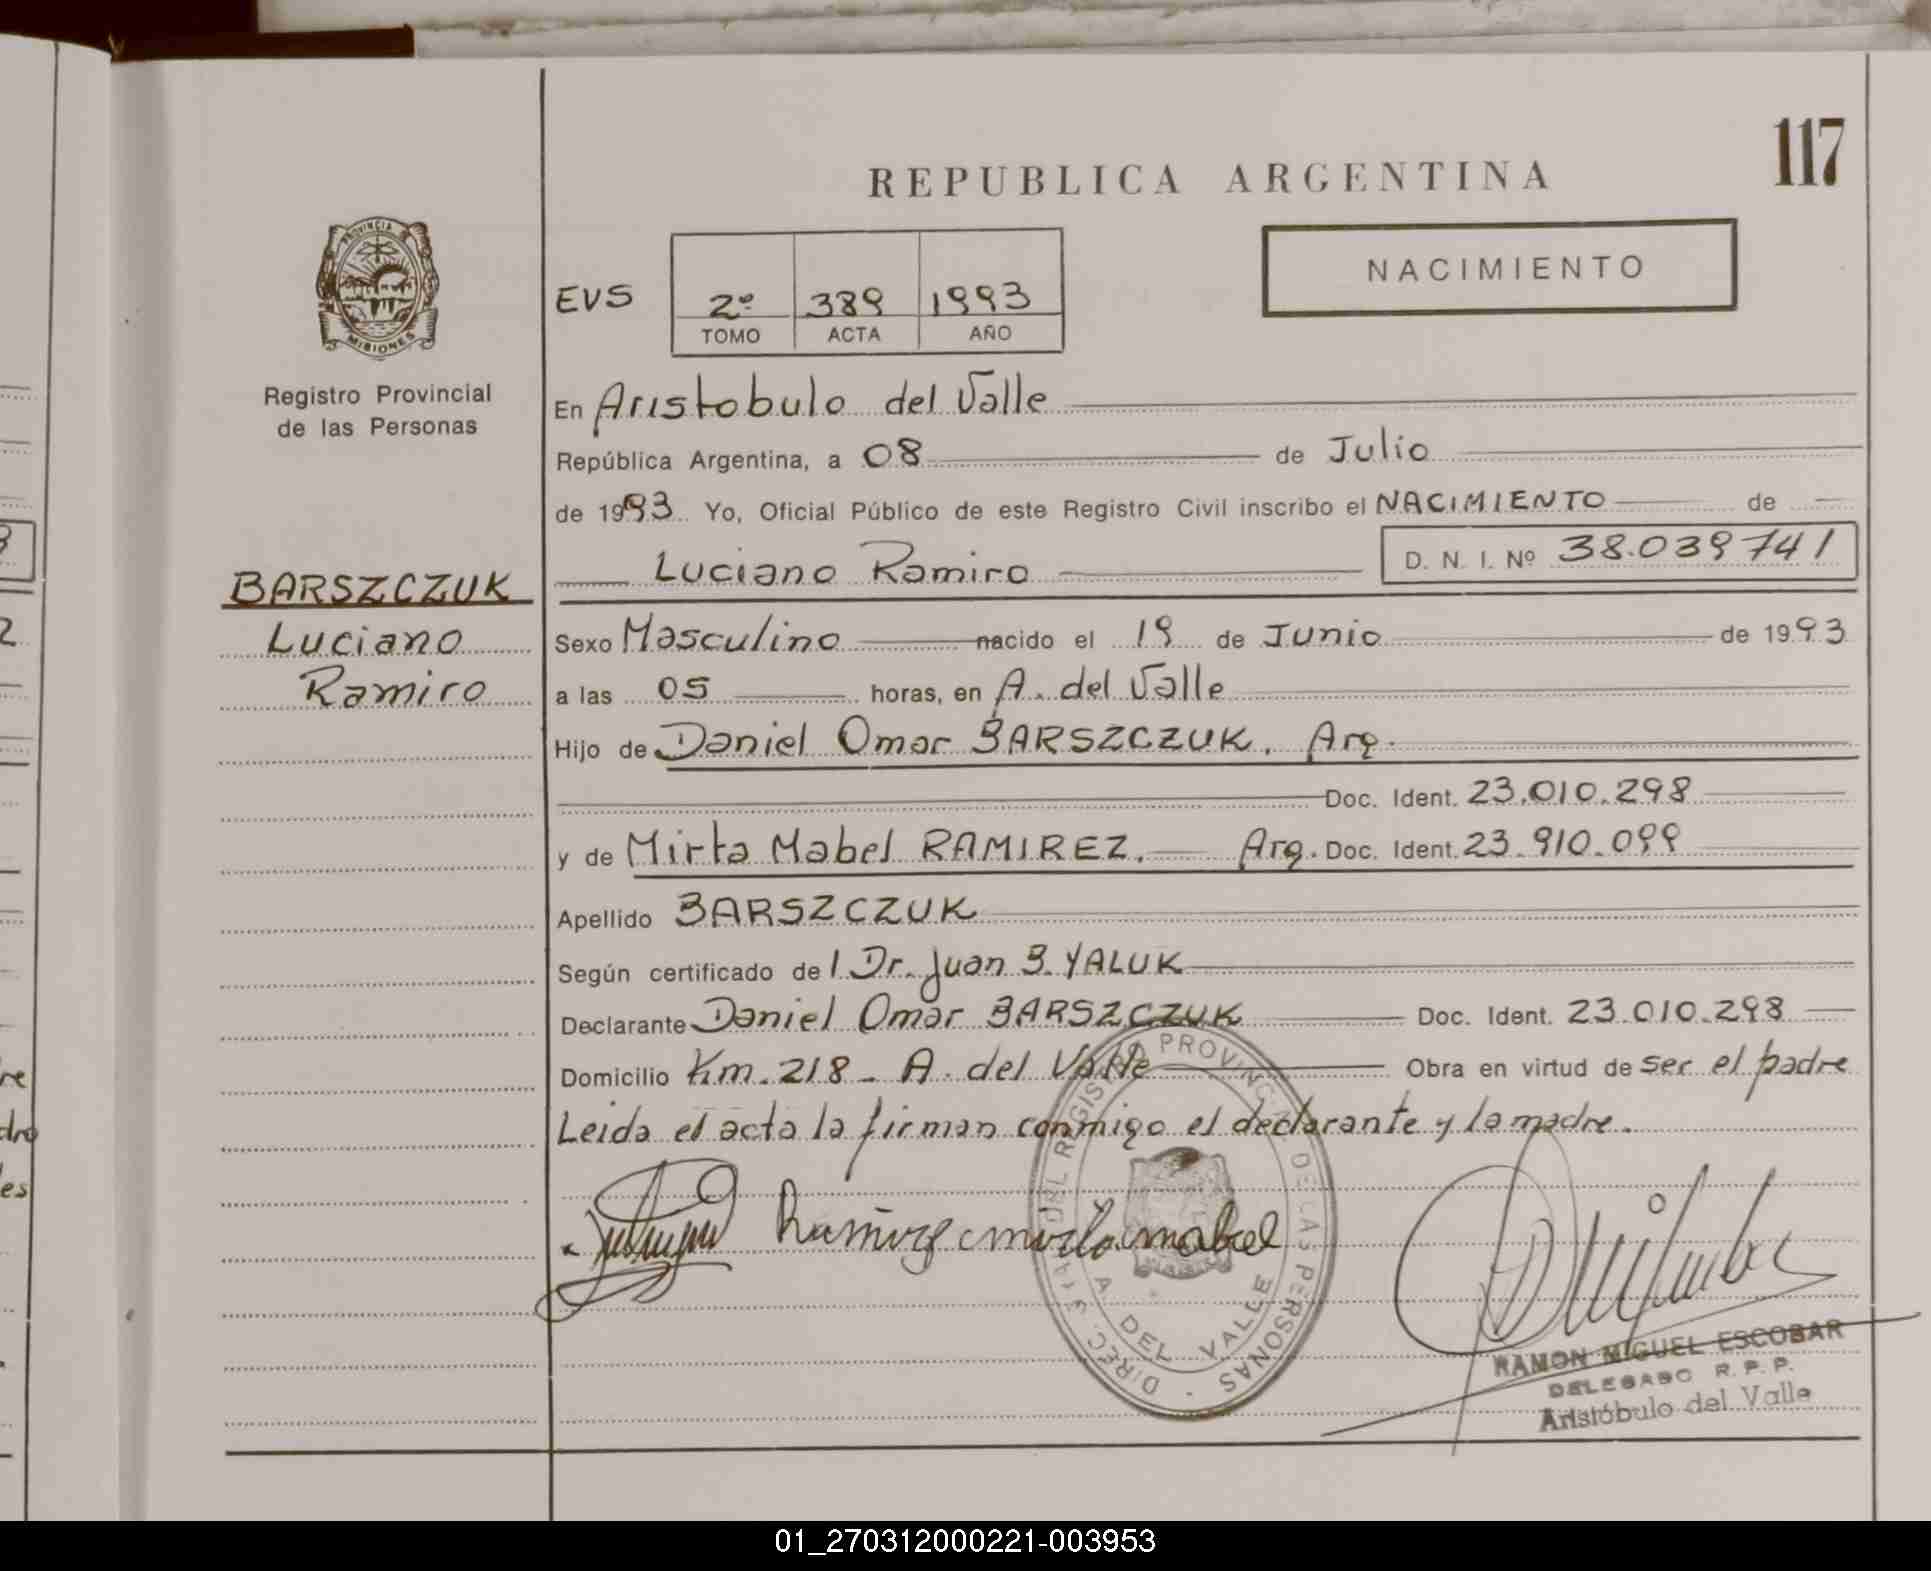 117
REPUBLICA ARGENTINA
NACIMIENTO
PROVINCIA
MISIONES
Registro Provincial
de las Personas
EVS
2º 389 1993
TOMO ACTA AÑO
En Aristobulo del Valle
República Argentina, a 08 de Julio
de 1993 Yo, Oficial Público de este Registro Civil inscribo el NACIMIENTO de
Luciano Ramiro D. N. I. Nº 38.039741
BARSZCZUK
Luciano
Ramiro
Sexo Masculino nacido el 19 de Junio de 1993
a las 05 horas, en A. del Valle
Hijo de Daniel Omar BARSZCZUK. Arg.
Doc. Ident. 23.010.298
y de Mirta Mabel RAMIREZ. Arg. Doc. Ident. 23.910.099
Apellido BARSZCZUK
Según certificado del Dr. Juan B. YALUK
Declarante Daniel Omar BARSZCZUK Doc. Ident. 23.010.298
Domicilio Km. 218 - A. del Valle Obra en virtud de ser el padre
Leida el acta la firman conmigo el declarante y la madre.
Ramirez mirta mabel
DEL REGISTRO PROVINCIAL DE LAS PERSONAS
A. DEL VALLE
RAMON MIGUEL ESCOBAR
DELEGADO R. P. P.
Aristóbulo del Valle
01_270312000221-003953